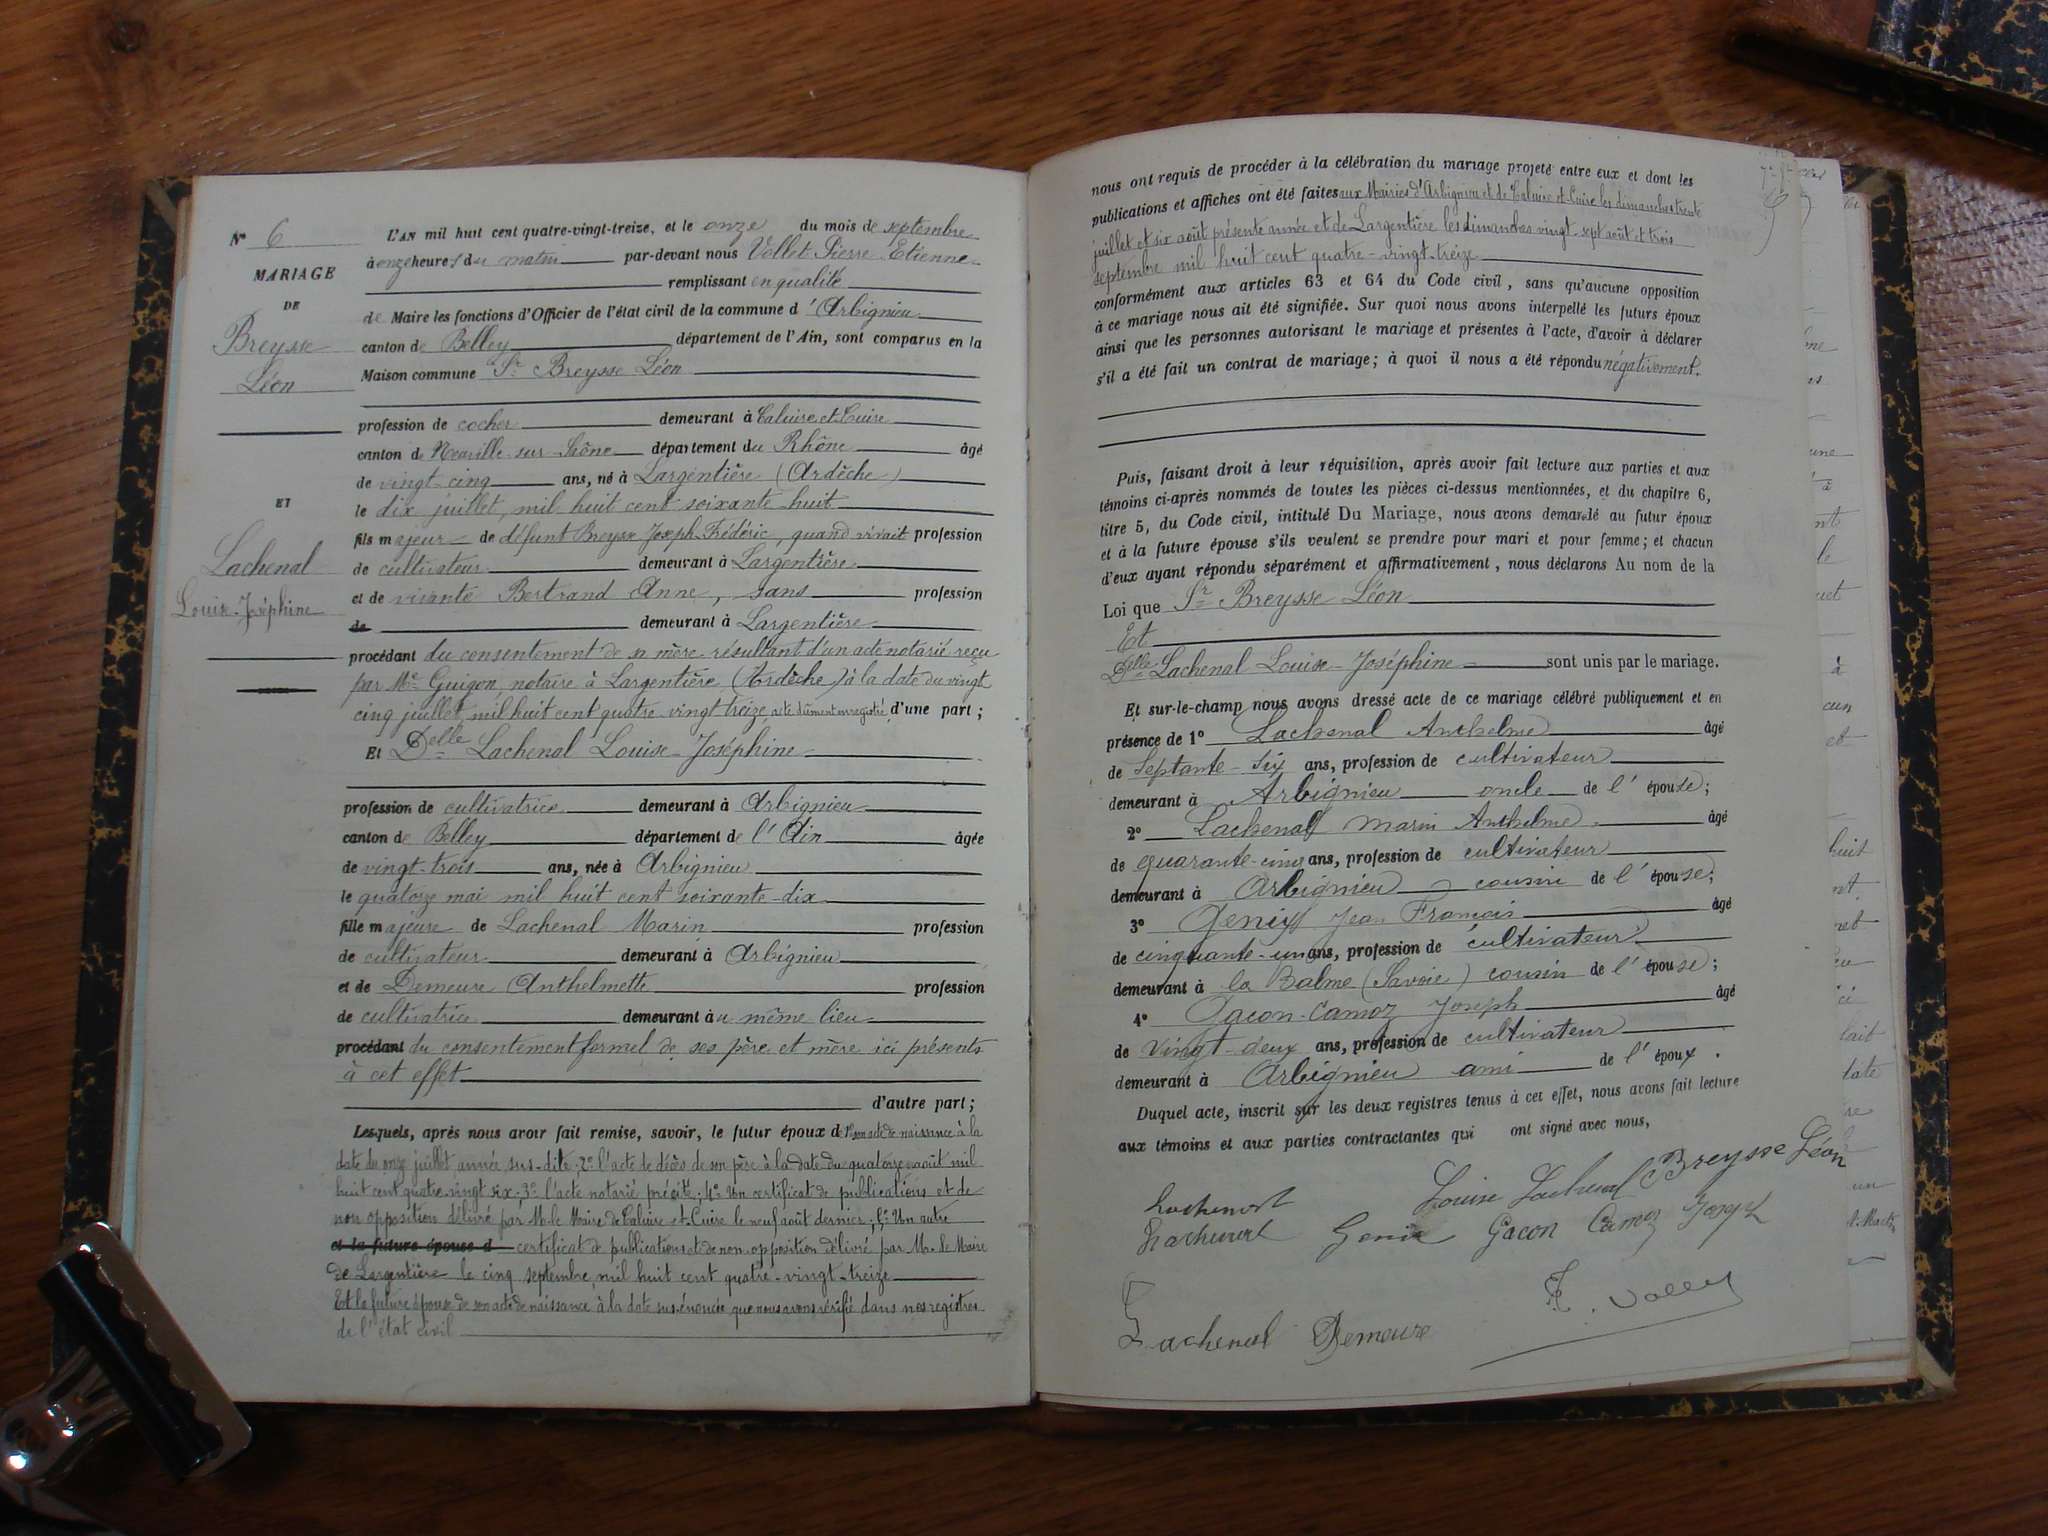 N° 6
MARIAGE
DE
Breysse
Léon
ET
Lachenal
Louise-Joséphine
L'AN mil huit cent quatre-vingt-treize, et le onze du mois de septembre
à onze heures du matin par-devant nous Vollet Pierre Etienne
remplissant en qualité
de Maire les fonctions d'Officier de l'état civil de la commune d'Arbignieu
canton de Belley département de l'Ain, sont comparus en la
Maison commune Sr Breysse Léon
profession de cocher demeurant à Caluire et Cuire
canton de Neuville-sur-Saône département du Rhône âgé
de vingt-cinq ans, né à Largentière (Ardèche)
le dix juillet, mil huit cent soixante-huit
fils majeur de défunt Breysse Joseph-Frédéric, quand vivait profession
de cultivateur demeurant à Largentière
et de vivante Bertrand Anne, sans profession
de demeurant à Largentière
procédant du consentement de sa mère résultant d'un acte notarié reçu
par Me Guigon, notaire à Largentière (Ardèche) à la date du vingt
cinq juillet mil huit cent quatre-vingt-treize, acte dûment enregistré d'une part;
Et Delle Lachenal Louise-Joséphine
profession de cultivatrice demeurant à Arbignieu
canton de Belley département de l'Ain âgée
de vingt-trois ans, née à Arbignieu
le quatorze mai mil huit cent soixante-dix
fille majeure de Lachenal Marin profession
de cultivateur demeurant à Arbignieu
et de Demeure Anthelmette profession
de cultivatrice demeurant au même lieu
procédant du consentement formel de ses père et mère ici présents
à cet effet
d'autre part;
Lesquels, après nous avoir fait remise, savoir, le futur époux de 1° son acte de naissance à la
date du onze juillet année sus-dite; 2° l'acte de décès de son père à la date du quatorze août mil
huit cent quatre-vingt six; 3° l'acte notarié précité; 4° Un certificat de publications et de
non opposition délivré par M. le Maire de Caluire et Cuire le neuf août dernier; 5° Un autre
et la future épouse d certificat de publications et de non opposition délivré par M. le Maire
de Largentière le cinq septembre mil huit cent quatre-vingt-treize
Et la future épouse de son acte de naissance à la date sus-énoncée que nous avons vérifié dans nos registres
de l'état civil
nous ont requis de procéder à la célébration du mariage projeté entre eux et dont les
publications et affiches ont été faites aux Mairies d'Arbignieu et de Caluire et Cuire les dimanches trente
juillet et six août présente année et de Largentière les dimanches vingt-sept août et trois
septembre mil huit cent quatre-vingt-treize
conformément aux articles 63 et 64 du Code civil, sans qu'aucune opposition
à ce mariage nous ait été signifiée. Sur quoi nous avons interpellé les futurs époux
ainsi que les personnes autorisant le mariage et présentes à l'acte, d'avoir à déclarer
s'il a été fait un contrat de mariage; à quoi il nous a été répondu négativement.
Puis, faisant droit à leur réquisition, après avoir fait lecture aux parties et aux
témoins ci-après nommés de toutes les pièces ci-dessus mentionnées, et du chapitre 6,
titre 5, du Code civil, intitulé Du Mariage, nous avons demandé au futur époux
et à la future épouse s'ils veulent se prendre pour mari et pour femme; et chacun
d'eux ayant répondu séparément et affirmativement, nous déclarons Au nom de la
Loi que Sr Breysse Léon
Et
Delle Lachenal Louise-Joséphine sont unis par le mariage.
Et sur-le-champ nous avons dressé acte de ce mariage célébré publiquement et en
présence de 1° Lachenal Anthelme âgé
de Septante-six ans, profession de cultivateur
demeurant à Arbignieu oncle de l'épouse;
2° Lachenal Marin Anthelme âgé
de quarante-cinq ans, profession de cultivateur
demeurant à Arbignieu cousin de l'épouse;
3° Genix Jean François âgé
de cinquante-un ans, profession de cultivateur
demeurant à la Balme (Savoie) cousin de l'épouse;
4° Gacon-Camoz Joseph âgé
de vingt-deux ans, profession de cultivateur
demeurant à Arbignieu ami de l'époux.
Duquel acte, inscrit sur les deux registres tenus à cet effet, nous avons fait lecture
aux témoins et aux parties contractantes qui ont signé avec nous,
Louise Lachenal Breysse Léon
Lachenal
Lachenal Genix Gacon Camoz Joseph
Lachenal Demeure